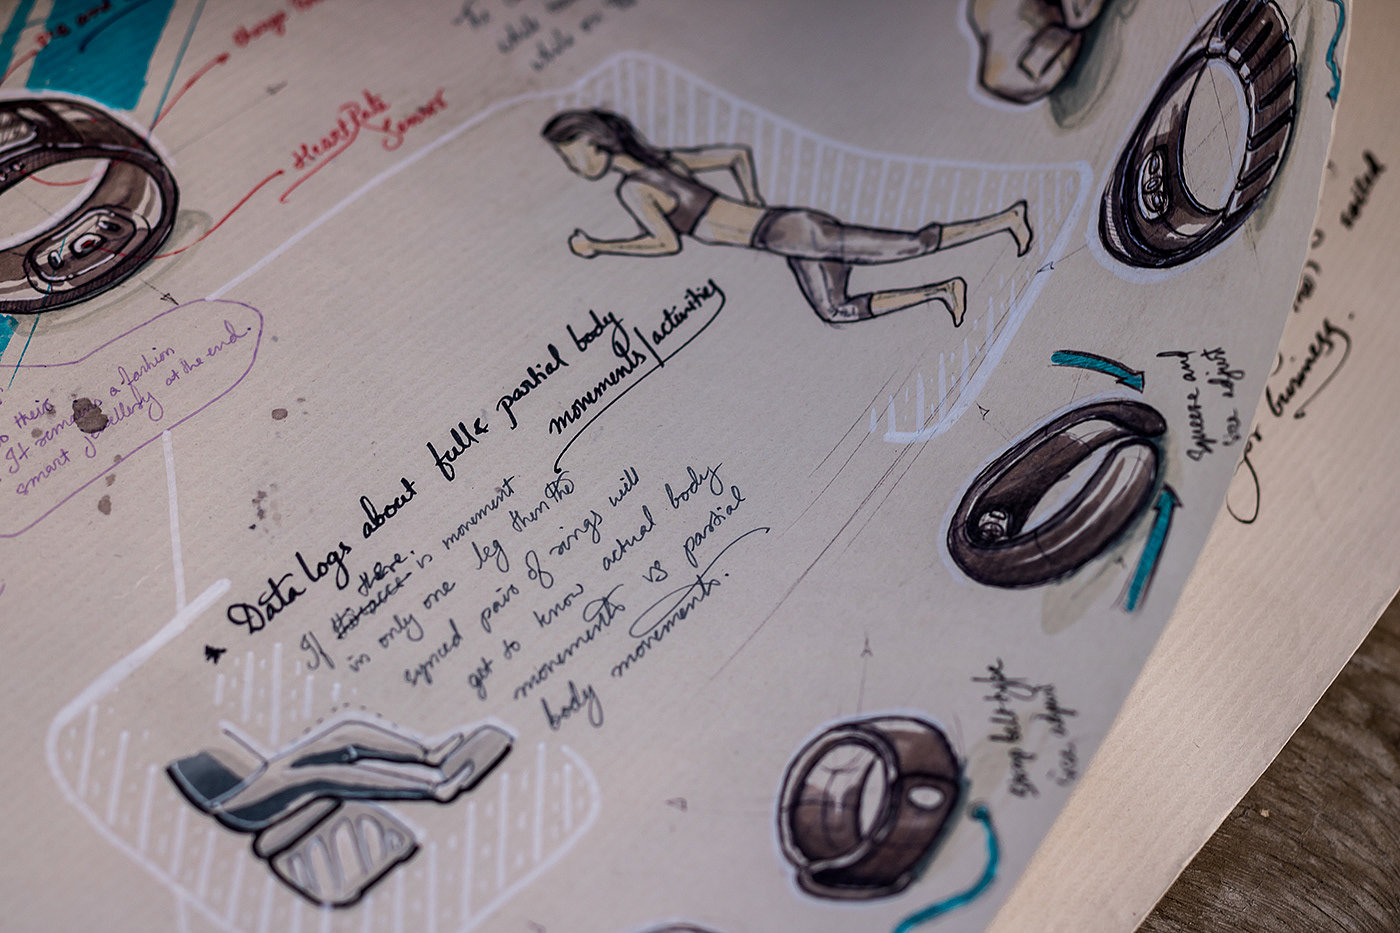 Heart Rate
Sensor
to their
It remains a fashion
smart jewellesty at the end.
Data logs about full & partial body
movements / activities
If there is movement
in only one leg then the
synced pair of rings will
get to know actual body
movements vs partial
body movements.
Squeeze and
size adjust
belt type
size adjust
business.